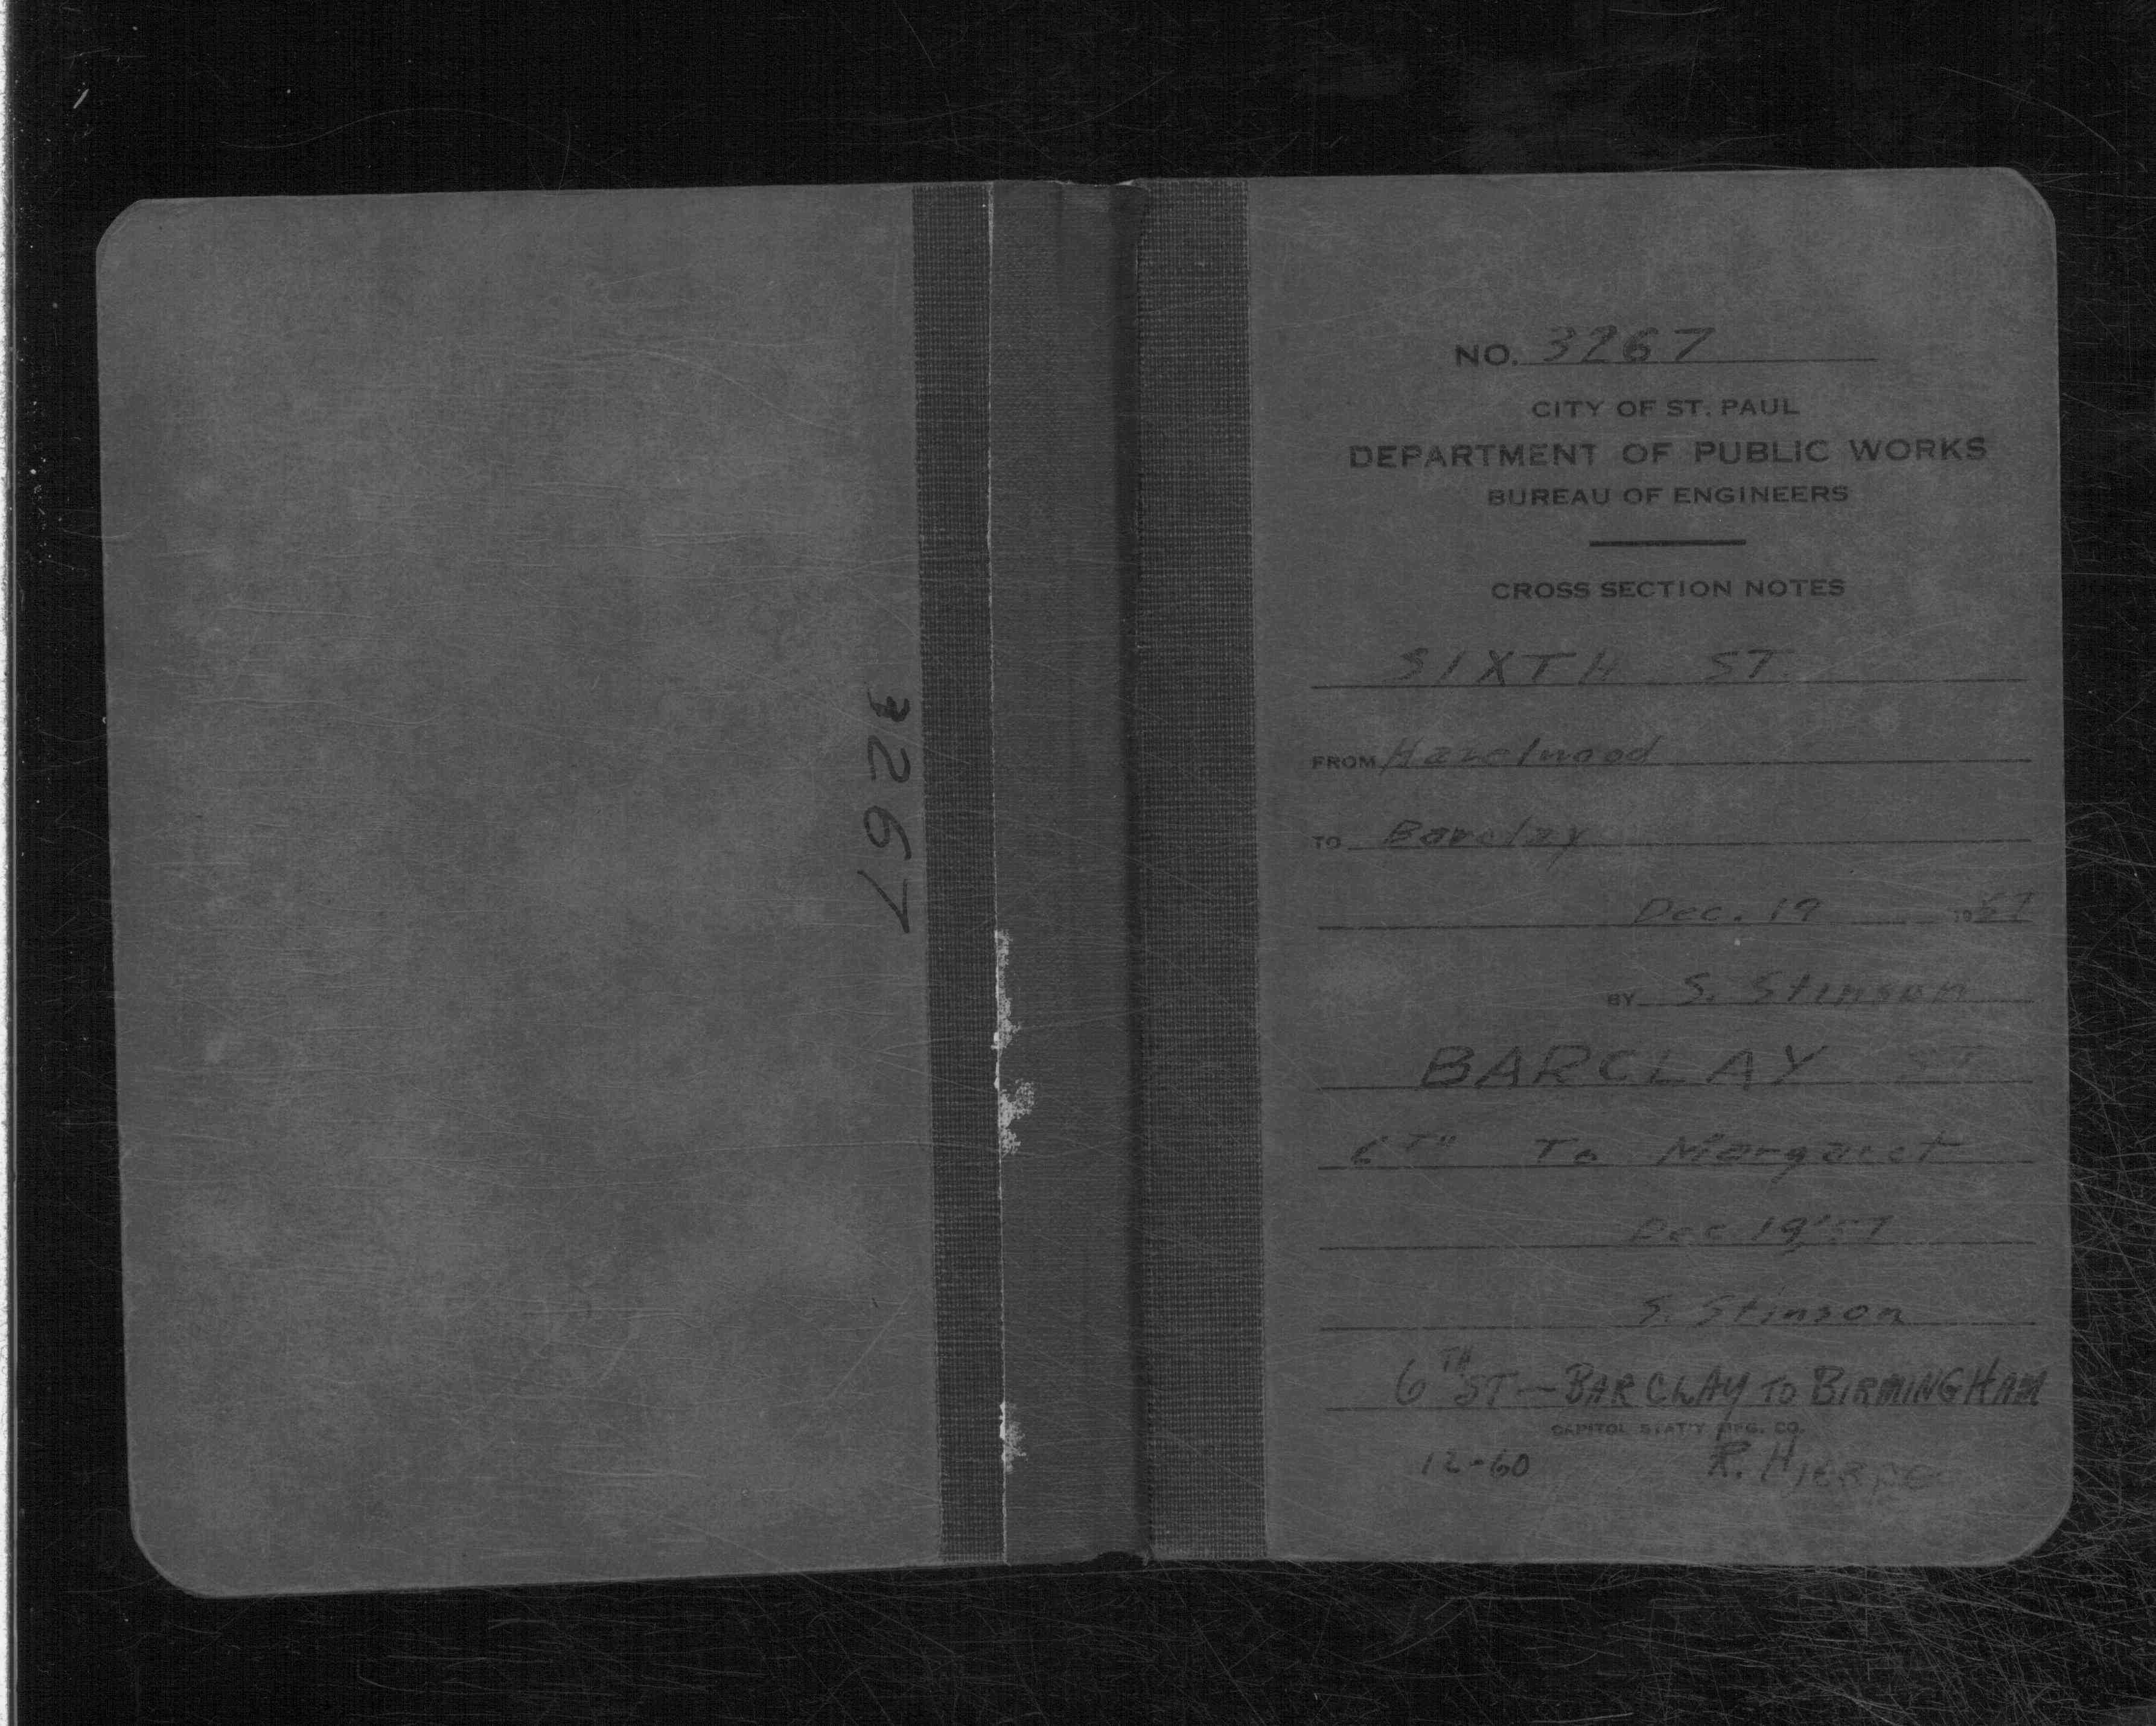 3267
NO. 3267
CITY OF ST. PAUL
DEPARTMENT OF PUBLIC WORKS
BUREAU OF ENGINEERS
CROSS SECTION NOTES
SIXTH ST.
FROM Hazelwood
TO Barclay
Dec. 19 1957
BY S. Stinson
BARCLAY ST
6TH To Margaret
Dec 19 '57
S. Stinson
6TH ST - BARCLAY TO BIRMINGHAM
CAPITOL STAT'Y MFG. CO.
12-60 R. Hjerpe